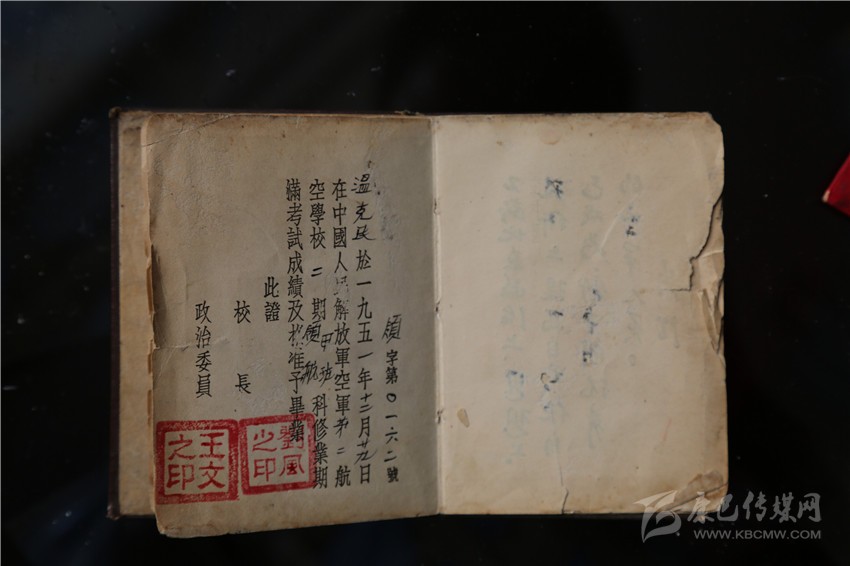 領字第〇一六二號
溫克民於一九五一年十二月廿九日
在中國人民解放軍空軍第二航
空學校二期甲班領航科修業期
滿考試成績及格准予畢業
此證
校長
政治委員
劉風之印
王文之印
康巴传媒网
WWW.KBCMW.COM